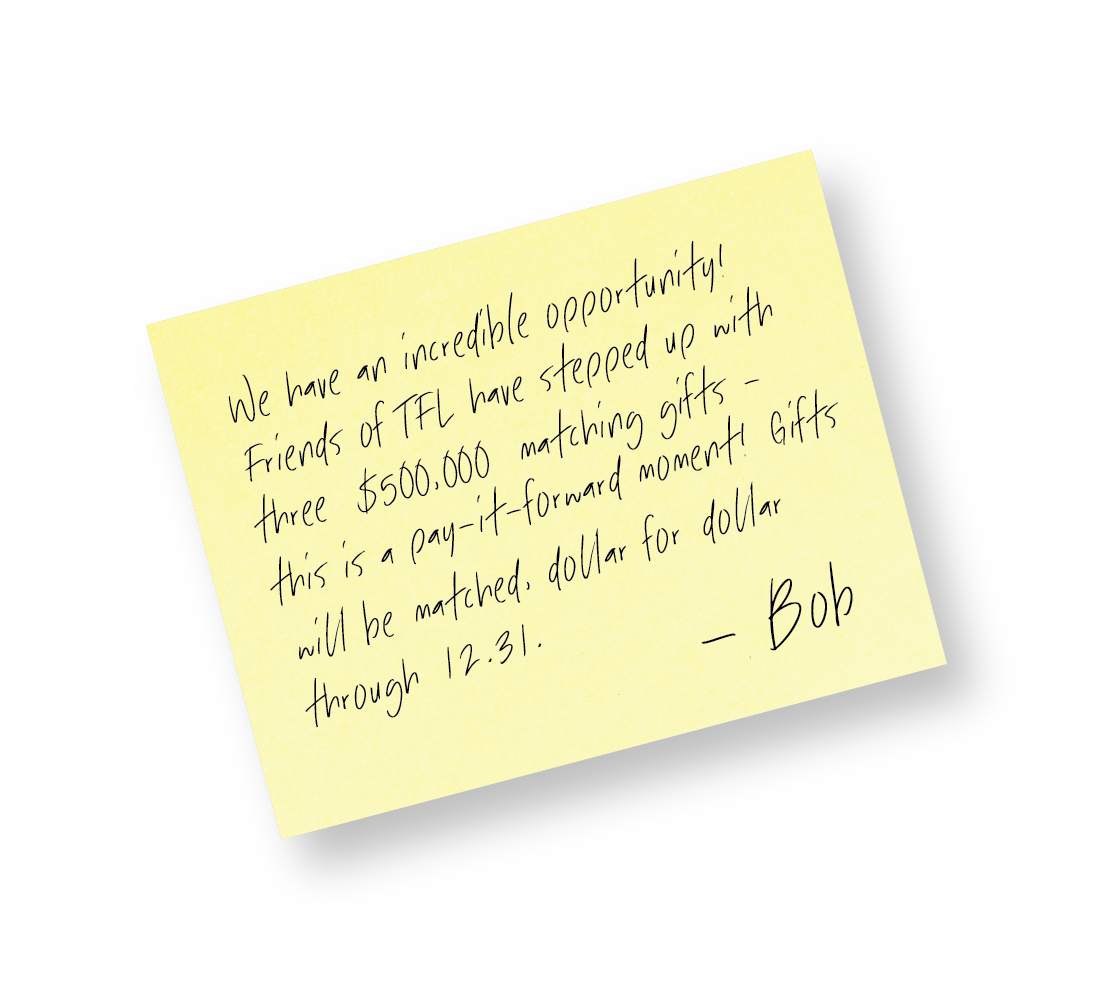 We have an incredible opportunity!
Friends of TFL have stepped up with
three $500,000 matching gifts -
this is a pay-it-forward moment! Gifts
will be matched, dollar for dollar
through 12.31.
- Bob